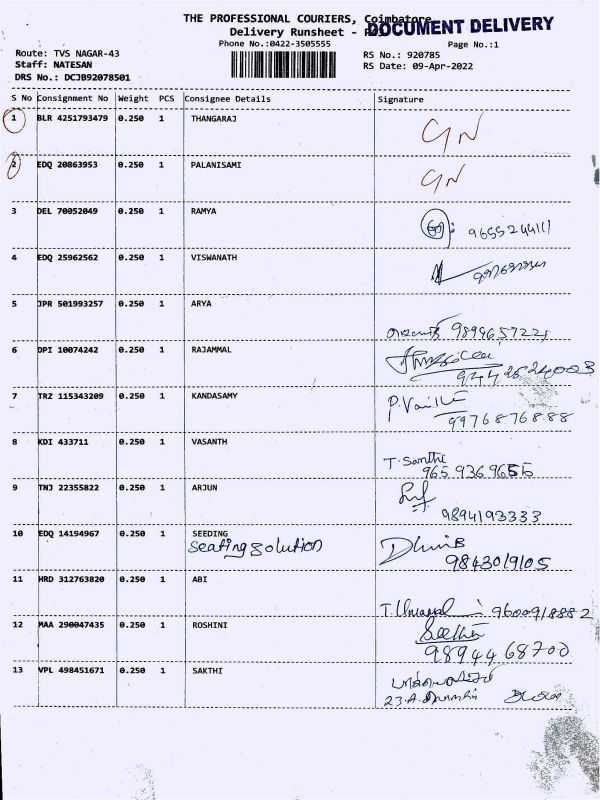 THE PROFESSIONAL COURIERS, Coimbatore
DOCUMENT DELIVERY
Delivery Runsheet -
Phone No.:0422-3505555
Page No.:1
Route: TVS NAGAR-43
RS No.: 920785
Staff: NATESAN
RS Date: 09-Apr-2022
DRS No.: DCJB92078501
S No Consignment No Weight PCS Consignee Details Signature
1 BLR 4251793479 0.250 1 THANGARAJ
2 EDQ 20863953 0.250 1 PALANISAMI
3 DEL 70052049 0.250 1 RAMYA
4 EDQ 25962562 0.250 1 VISWANATH
5 JPR 501993257 0.250 1 ARYA
6 DPI 10074242 0.250 1 RAJAMMAL
7 TRZ 115343209 0.250 1 KANDASAMY
P.
9976876888
8 KDI 433711 0.250 1 VASANTH
T. Santhi
9659369655
9 TNJ 22355822 0.250 1 ARJUN
9894193333
10 EDQ 14194967 0.250 1 SEEDING
Seating Solution
9843019105
11 HRD 312763820 0.250 1 ABI
9600918882
12 MAA 290047435 0.250 1 ROSHINI
9894468700
13 VPL 498451671 0.250 1 SAKTHI
23.A.